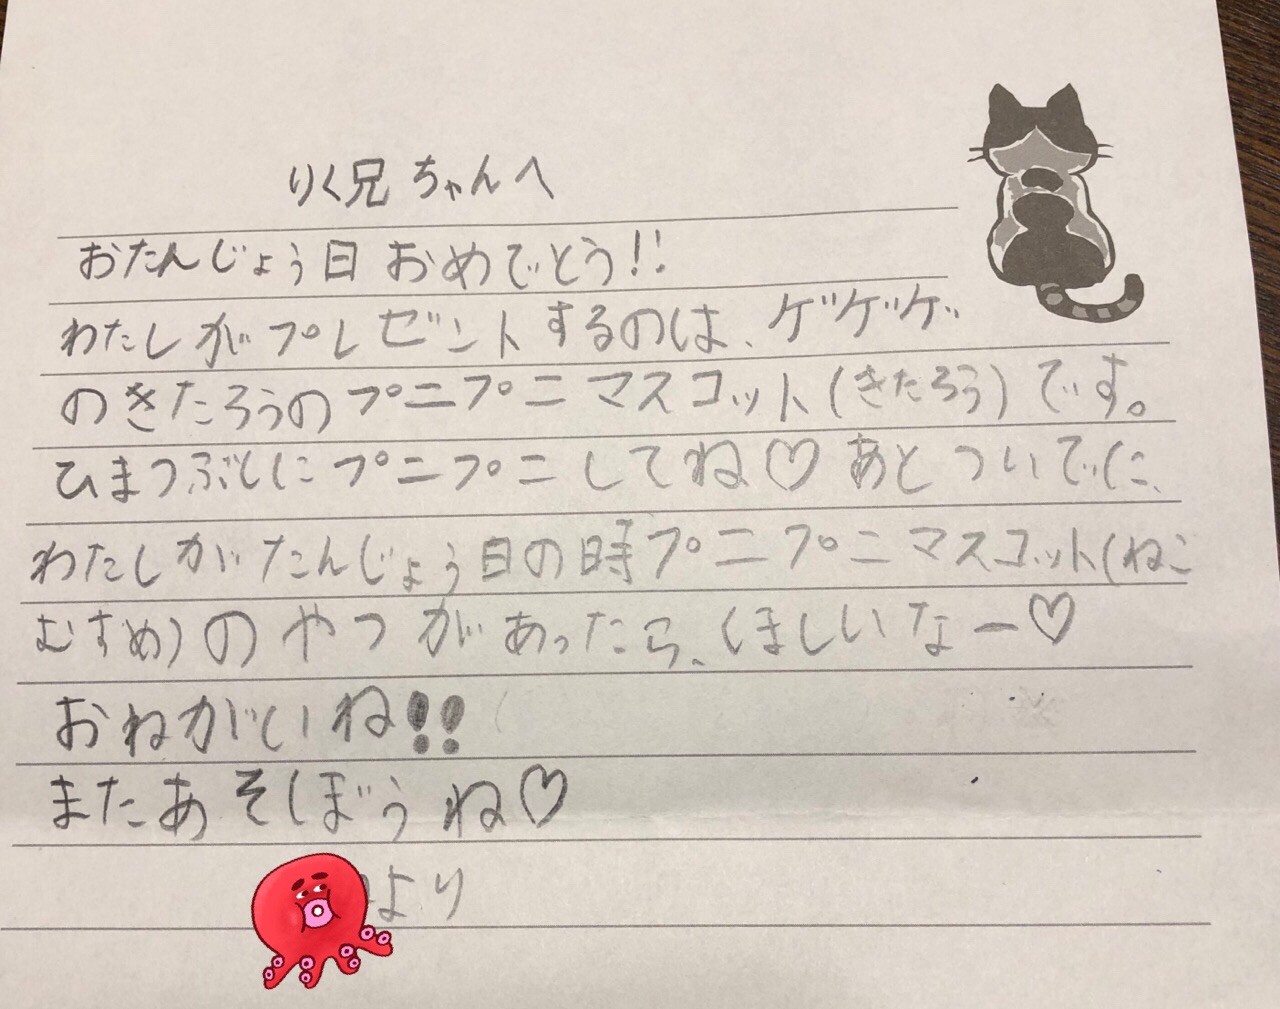 りく兄ちゃんへ
おたんじょう日おめでとう!!
わたしがプレゼントするのは、ゲゲゲ
のきたろうのプニプニマスコット(きたろう)です。
ひまつぶしにプニプニしてね♡あとついでに、
わたしがたんじょう日の時プニプニマスコット(ねこ
むすめ)のやつがあったら、ほしいなー♡
おねがいね!!
またあそぼうね♡
より